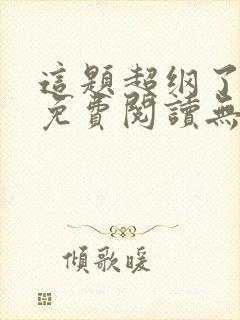 這題超纲了
免費閱讀無
傾歌暖